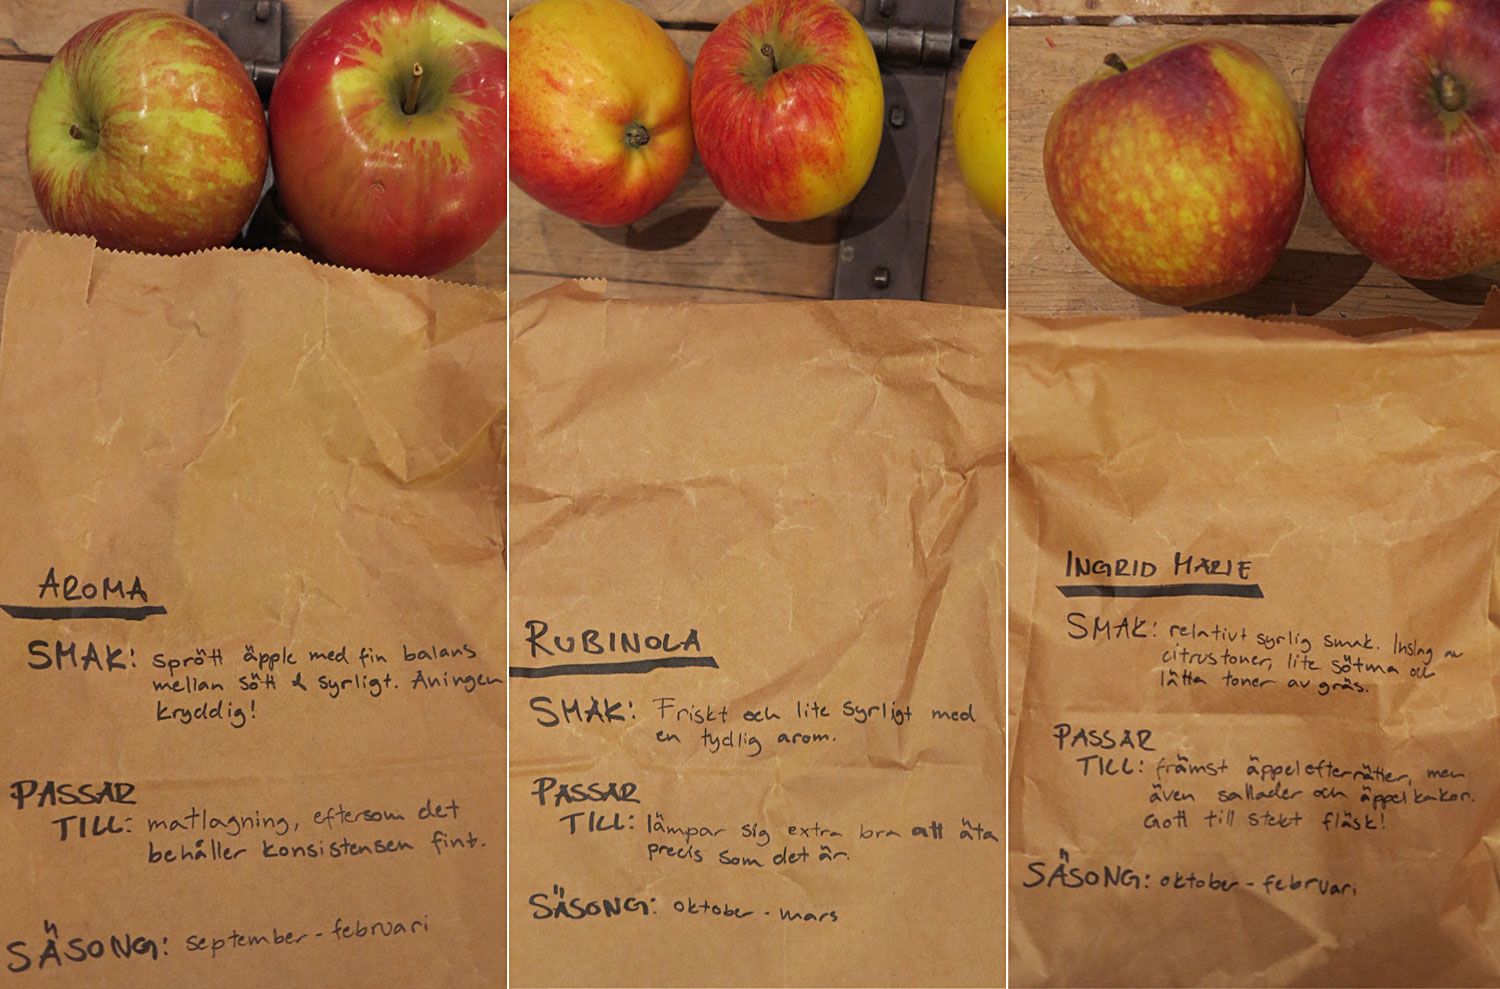 AROMA
SMAK: Sprött äpple med fin balans
mellan sött & syrligt. Aningen
kryddig!
PASSAR
TILL: matlagning, eftersom det
behåller konsistensen fint.
SÄSONG: september - februari
RUBINOLA
SMAK: Friskt och lite syrligt med
en tydlig arom.
PASSAR
TILL: lämpar sig extra bra att äta
precis som det är.
SÄSONG: oktober - mars
INGRID MARIE
SMAK: relativt syrlig smak. Inslag av
citrustoner, lite sötma och
lätta toner av gräs.
PASSAR
TILL: främst äppelefterrätter, men
även sallader och äppelkakor.
Gott till stekt fläsk!
SÄSONG: oktober - februari